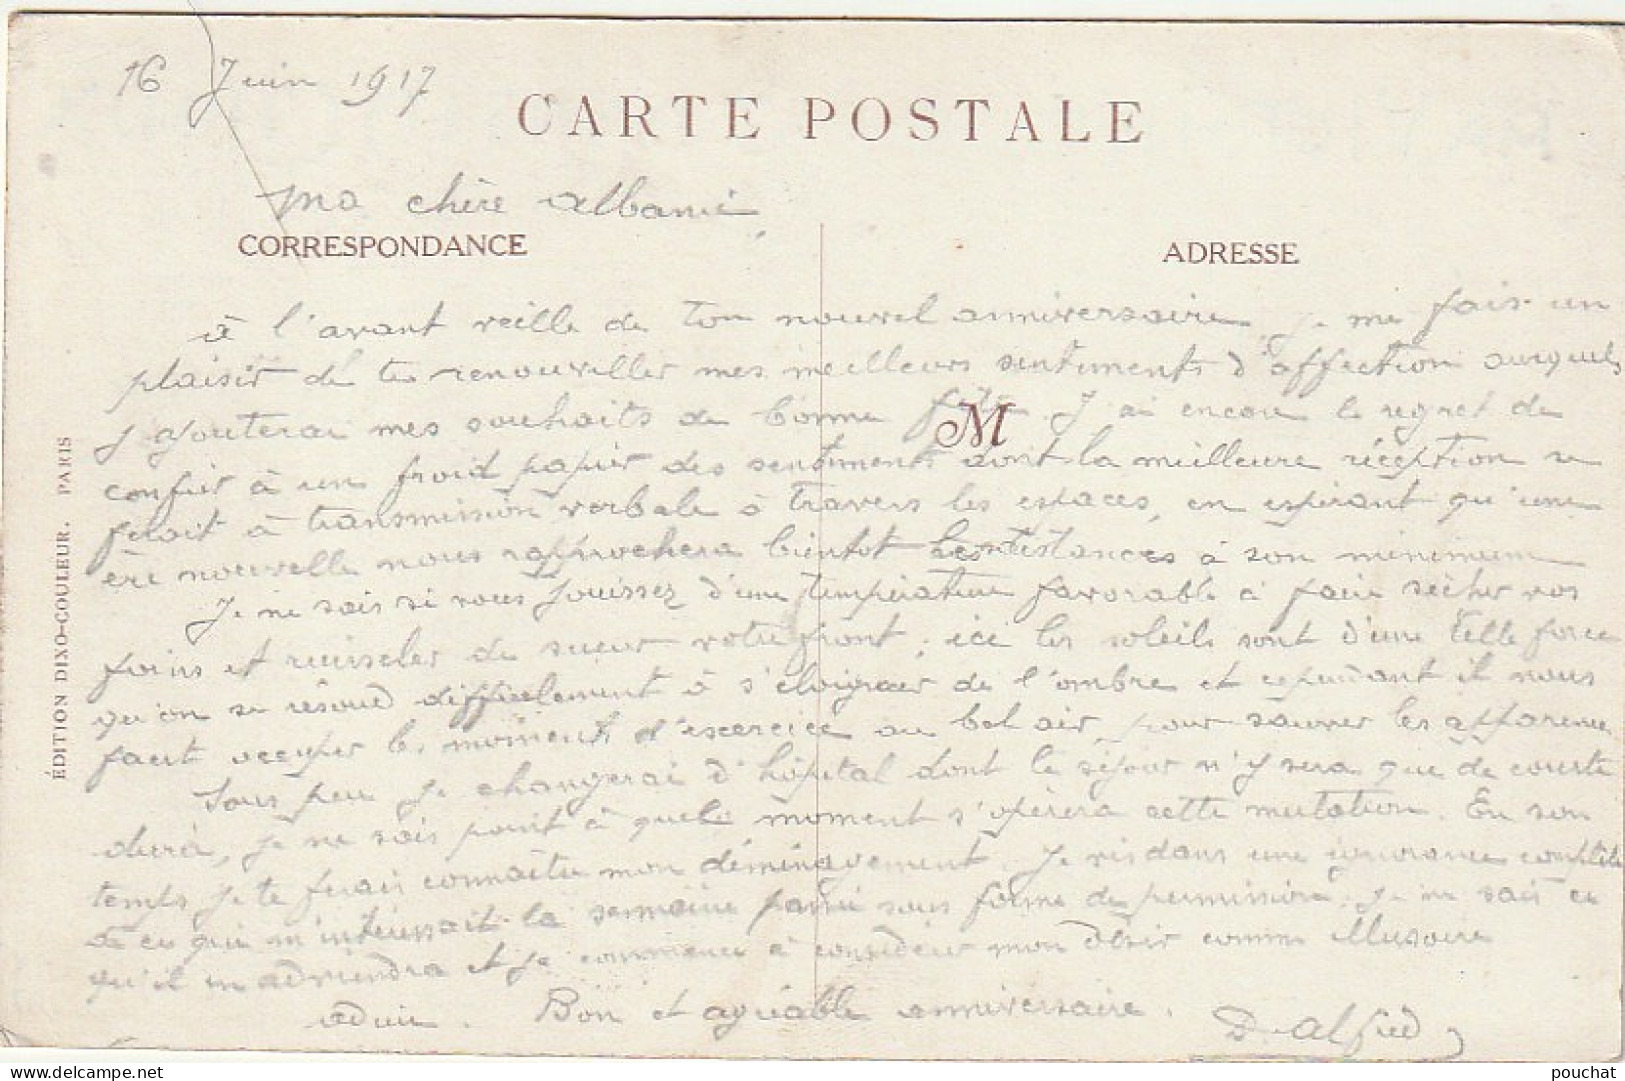 16 Juin 1917
CARTE POSTALE
Ma chère Albanie,
CORRESPONDANCE
ADRESSE
à l'avant veille de ton nouvel anniversaire, je me fais un
plaisir de te renouveller mes meilleurs sentiments d'affection auxquels
j'ajouterai mes souhaits de bonne fête. J'ai encore le regret de
M
confier à un froid papier des sentiments dont la meilleure réception se
ferait à transmission verbale à travers les espaces, en espérant qu'une
ère nouvelle nous rapprochera bientot les distances à son minimum
Je ne sais si vous jouissez d'une température favorable à faire sècher vos
foins et ruisseler de sueur votre front, ici les soleils sont d'une telle force
qu'on se résoud difficilement à s'éloigner de l'ombre et cependant il nous
faut occuper les moments d'exercice au bel air, pour sauver les apparences
Sous peu je changerai d'hôpital dont le séjour n'y sera que de courte
durée, je ne sais point à quel moment s'opèrera cette mutation. En son
temps je te ferai connaître mon déménagement. Je vis dans une ignorance complète
de ce qui m'intéressait la semaine passée sous forme de permission. Je ne sais ce
qu'il m'adviendra et je commence à considérer mon désir comme illusoire
adieu. Bon et agréable anniversaire.
D. Alfred
ÉDITION DIXO-COULEUR. PARIS
pouchat